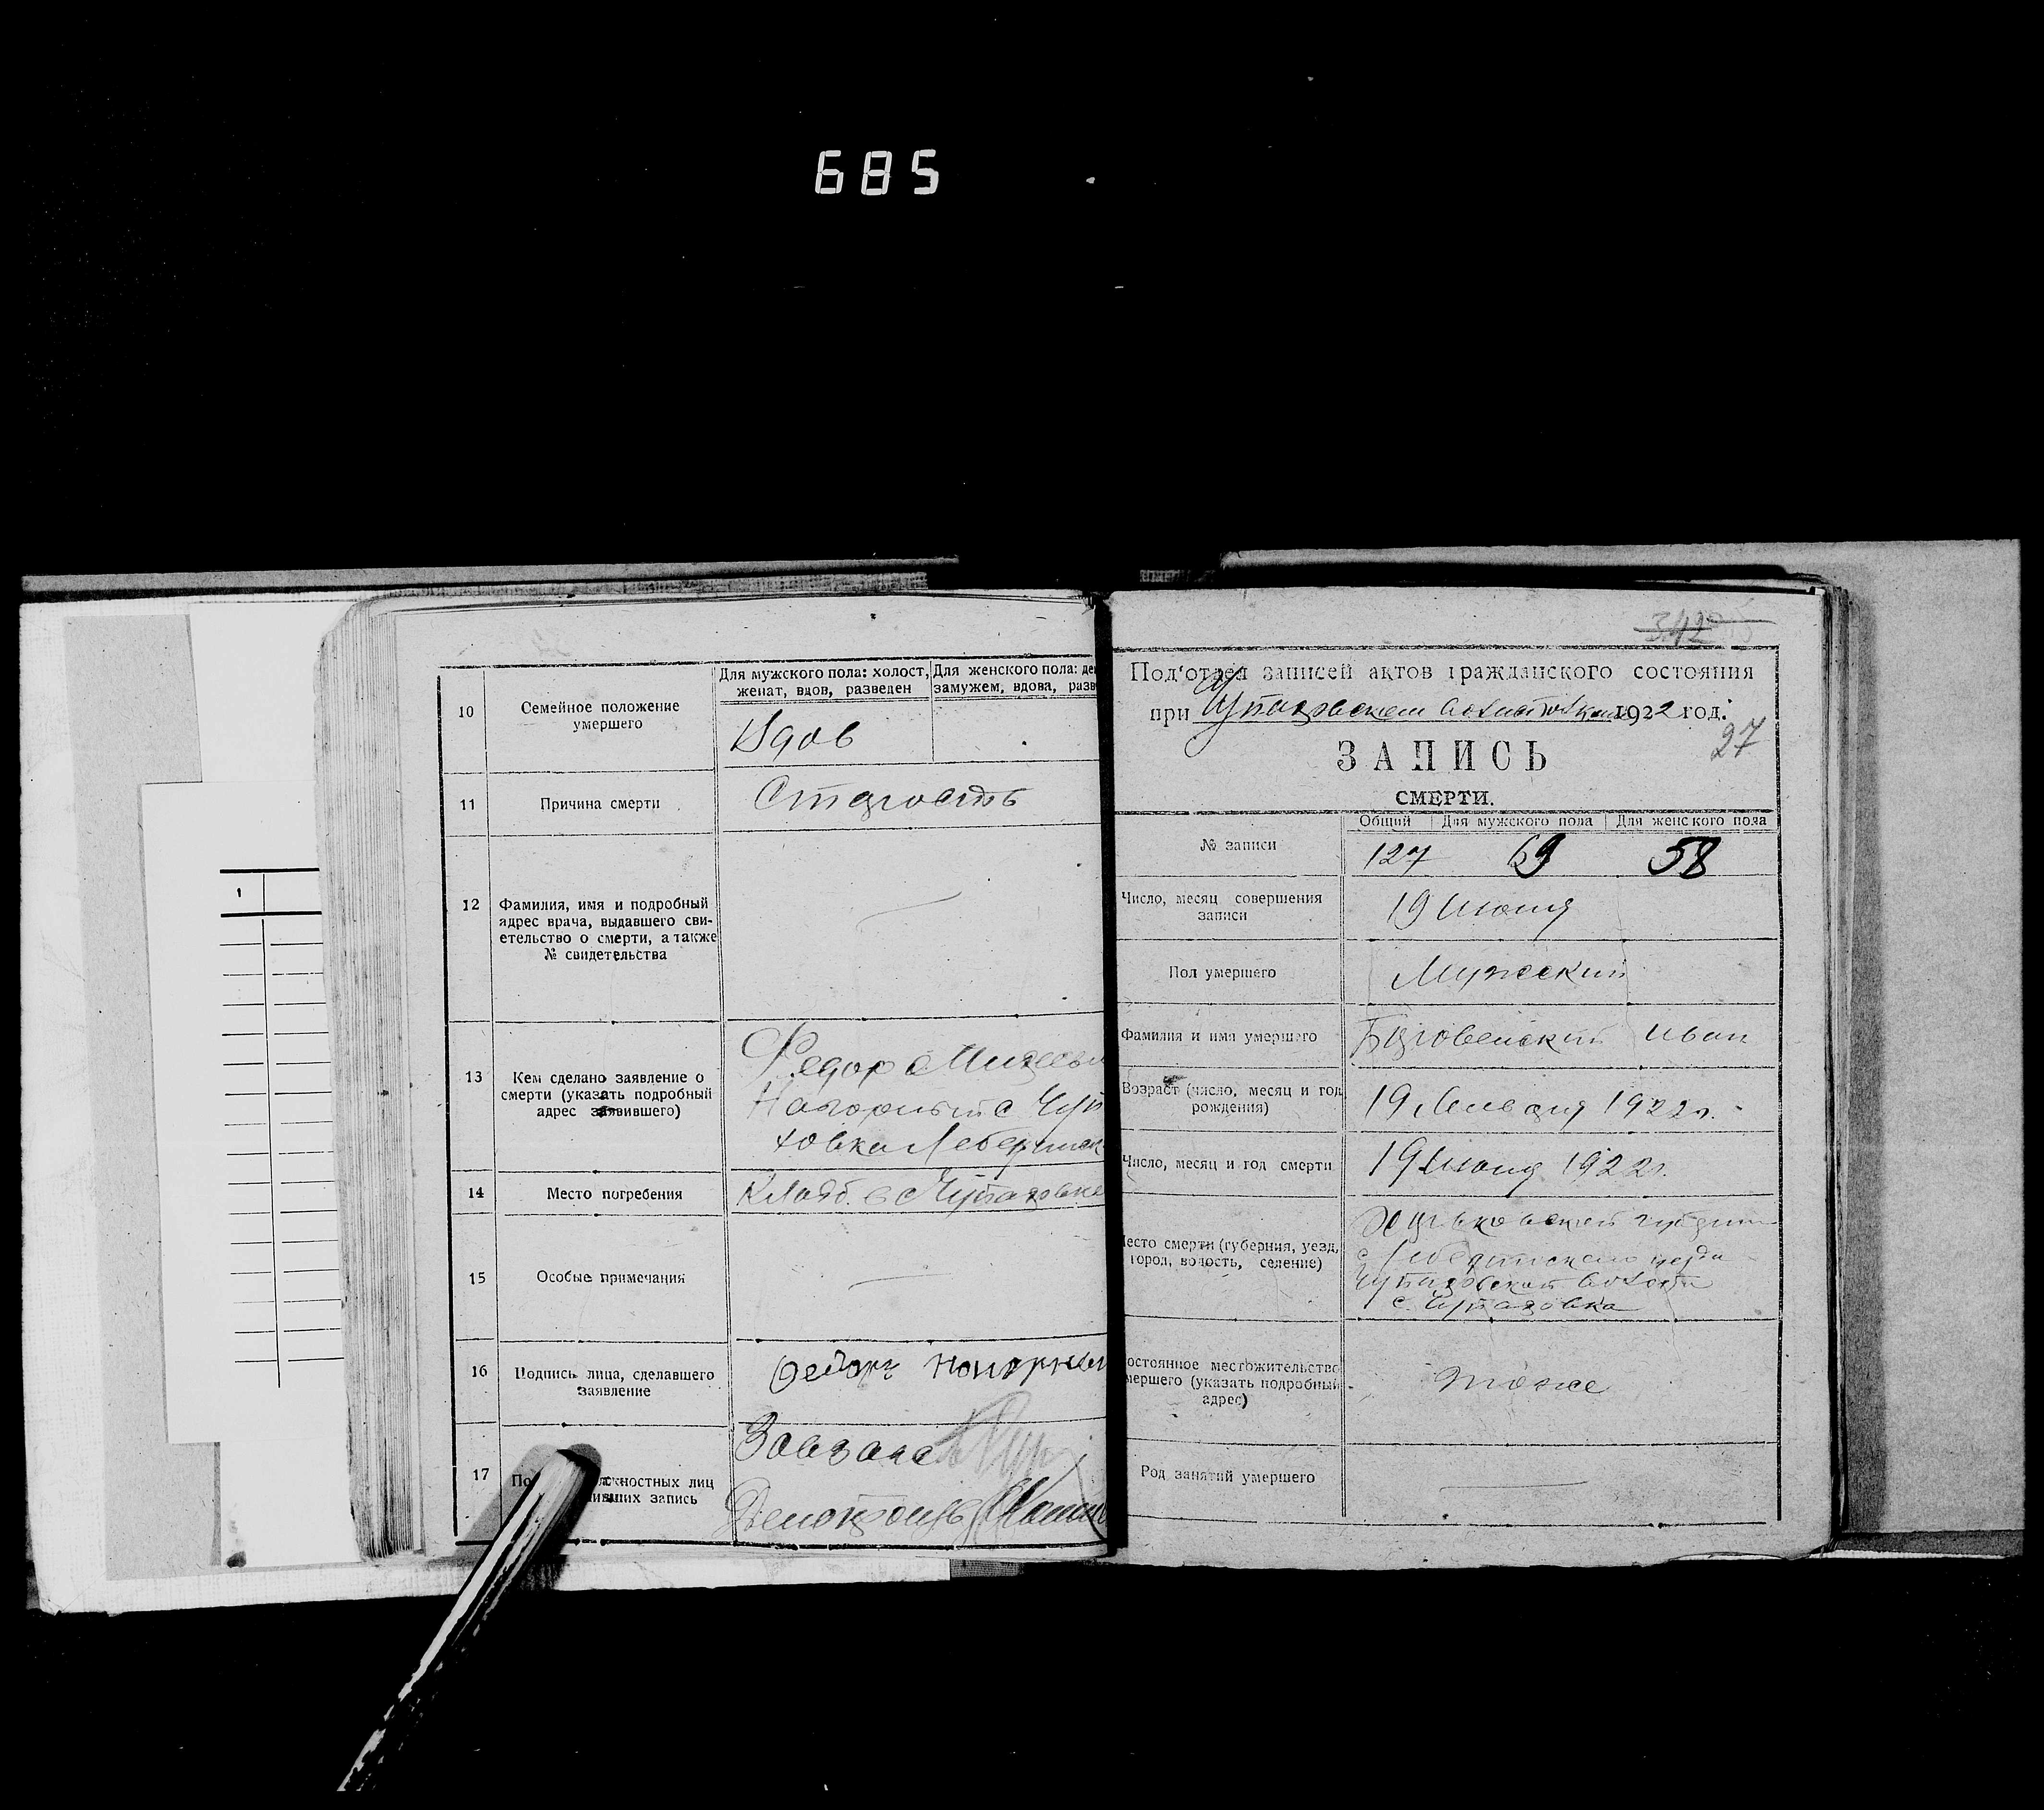 685
10
Семейное положение
умершего
Для мужского пола: холост,
женат, вдов, разведен
Для женского пола: де
замужем, вдова, разв
Вдов
11
Причина смерти
Старость
12
Фамилия, имя и подробный
адрес врача, выдавшего сви-
етельство о смерти, а также
№ свидетельства
13
Кем сделано заявление о
смерти (указать подробный
адрес заявившего)
Федор
Нагорный с Чуп
ховка Лебединск
14
Место погребения
Кладб. в с Чупаховке
15
Особые примечания
16
Подпись лица, сделавшего
заявление
Федоръ
17
По жностных лиц
ивших запись
Завзаг
Делопроизв
1
342
Под'отдел записей актов гражданского состояния
при Чупаховском 1922 год.
27
ЗАПИСЬ
СМЕРТИ.
№ записи
Общий
Для мужского пола
Для женского пола
127 69 58
Число, месяц совершения
записи
19 Июня
Пол умершего
Мужеский
Фамилия и имя умершего
Иван
Возраст (число, месяц и год
рождения)
19 Января 1922г.
Число, месяц и год смерти
19 Июня 1922г.
есто смерти (губерния, уезд,
город, волость, селение)
Харьковской губернии
Лебединского уезда
Чупаховской волости
с. Чупаховка
остоянное местожительство
мершего (указать подробный
адрес)
тоже
Род занятий умершего